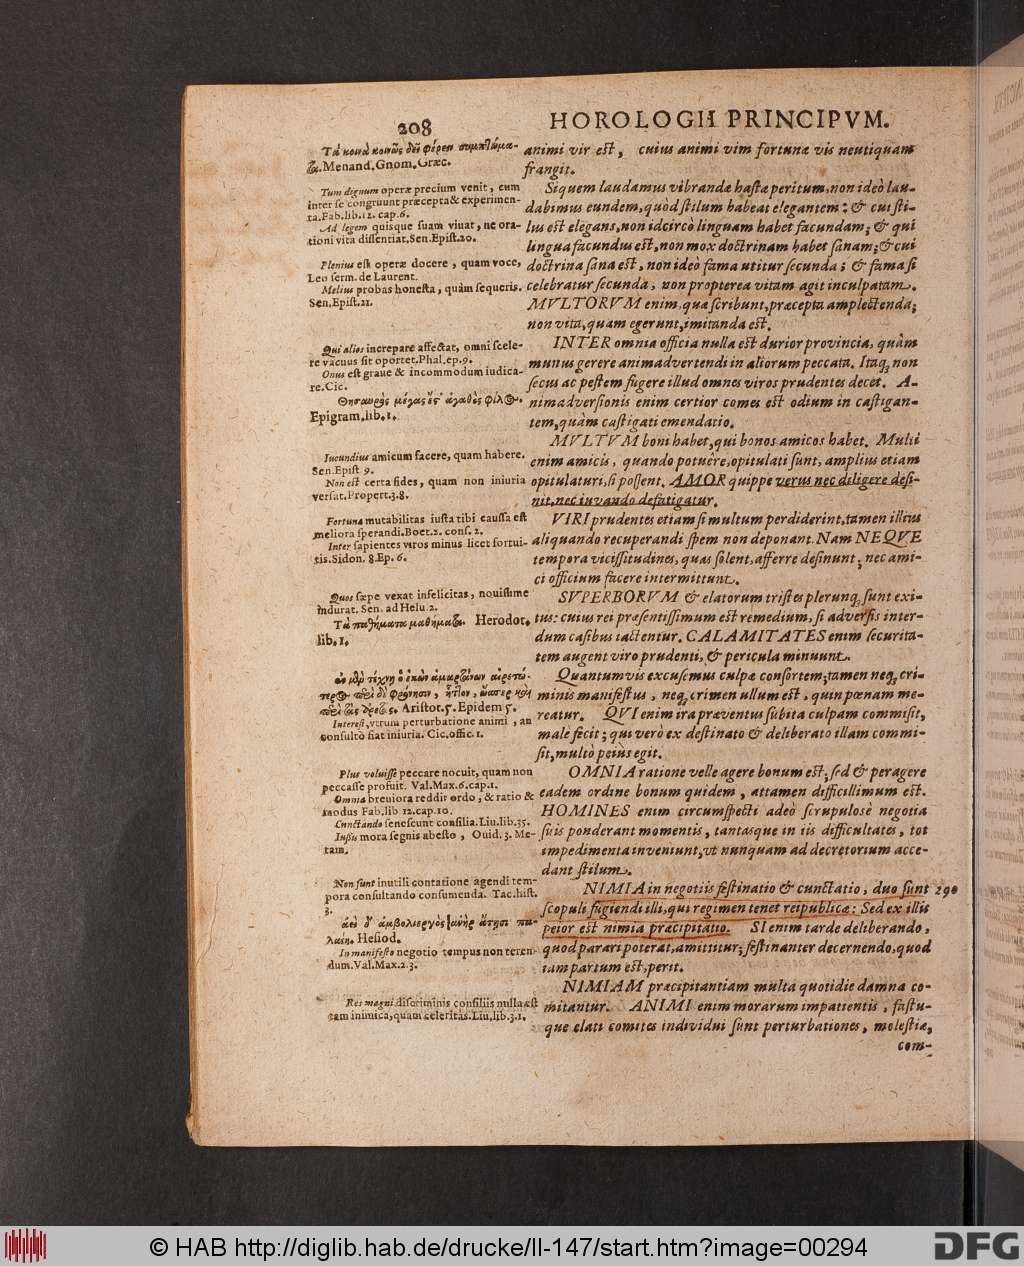 208 HOROLOGII PRINCIPVM.
Τὰ κοινὰ κοινῶς δεῖ φέρειν συμπτώμα-
τα. Menand. Gnom. Græc.
Tum dignum operæ precium venit, cum
inter se congruunt præcepta & experimen-
ta. Fab. lib. 12. cap. 6.
Ad legem quisque suam viuat, ne ora-
tioni vita dissentiat. Sen. Epist. 20.
Plenius est operæ docere, quam voce,
Leo serm. de Laurent.
Melius probas honesta, quàm sequeris.
Sen. Epist. 21.
Qui alios increpare affectat, omni scele-
re vacuus sit oportet. Phal. ep. 9.
Onus est graue & incommodum iudica-
re. Cic.
Θησαυρὸς μέγας ἔς᾽ ἀγαθὸς φίλος.
Epigram. lib. 1.
Iucundius amicum facere, quam habere.
Sen. Epist 9.
Non est certa fides, quam non iniuria
versat. Propert. 3. 8.
Fortunæ mutabilitas iusta tibi caussa est
meliora sperandi. Boet. 2. cons. 2.
Inter sapientes viros minus licet fortui-
tis. Sidon. 8. Ep. 6.
Quos sæpe vexat infelicitas, nouissime
indurat. Sen. ad Helu. 2.
Τὰ παθήματα μαθήματα. Herodot.
lib. 1.
Aristot. 5. Epidem 5.
Interest, vtrum perturbatione animi, an
consultò fiat iniuria. Cic. offic. 1.
Plus voluisse peccare nocuit, quam non
peccasse profuit. Val. Max. 6. cap. 1.
Omnia breuiora reddit ordo, & ratio &
modus Fab. lib 12. cap. 10.
Cunctando senescunt consilia. Liu. lib. 35.
Iussis mora segnis abesto, Ouid. 3. Me-
tam.
Non sunt inutili contatione agendi tem-
pora consultando consumenda. Tac. hist.
3.
αἰεὶ δ᾽ ἀμβολιεργὸς ἀνὴρ ἄτῃσι πα-
λαίει. Hesiod.
In manifesto negotio tempus non teren-
dum. Val. Max. 2. 3.
Res magni discriminis consiliis nulla est
tam inimica, quam celeritas. Liu. lib. 3. 1.
animi vir est, cuius animi vim fortunæ vis neutiquam
frangit.
Si quem laudamus vibrandæ hastæ peritum, non ideò lau-
dabimus eundem, quòd stilum habeat elegantem: & cui sti-
lus est elegans, non idcircò linguam habet facundam; & qui
lingua facundus est, non mox doctrinam habet sanam; & cui
doctrina sana est, non ideò fama utitur secunda; & fama si
celebratur secunda, non propterea vitam agit inculpatam.
MVLTORVM enim, quæ scribunt, præcepta amplectenda;
non vita, quam egerunt, imitanda est.
INTER omnia officia nulla est durior provincia, quàm
munus gerere animadvertendi in aliorum peccata. Itaq; non
secus ac pestem fugere illud omnes viros prudentes decet. A-
nimadversionis enim certior comes est odium in castigan-
tem, quàm castigati emendatio.
MVLTVM boni habet, qui bonos amicos habet. Multi
enim amicis, quando potuêre, opitulati sunt, amplius etiam
opitulaturi, si possent. AMOR quippe verus nec diligere desi-
nit, nec iuvando defatigatur.
VIRI prudentes etiam si multum perdiderint, tamen illius
aliquando recuperandi spem non deponant. Nam NEQVE
tempora vicissitudines, quas solent, afferre desinunt; nec ami-
ci officium facere intermittunt.
SVPERBORVM & elatorum tristes plerunq; sunt exi-
tus: cuius rei præsentissimum est remedium, si adversis inter-
dum casibus iactentur. CALAMITATES enim securita-
tem augent viro prudenti, & pericula minuunt.
Quantumvis excusemus culpæ consortem; tamen neq; cri-
minis manifestus, neq; crimen ullum est, quin pœnam me-
reatur. QVI enim ira præventus subita culpam commisit,
male fecit; qui verò ex destinato & deliberato illam commi-
sit, multò peiùs egit.
OMNIA ratione velle agere bonum est; sed & peragere
eadem ordine bonum quidem, attamen difficillimum est.
HOMINES enim circumspecti adeò scrupulosè negotia
suis ponderant momentis, tantasque in iis difficultates, tot
impedimenta inveniunt, vt nunquam ad decretorium acce-
dant stilum.
NIMIA in negotiis festinatio & cunctatio, duo sunt 290
scopuli fugiendi illi, qui regimen tenet reipublicæ: Sed ex illis
peior est nimia præcipitatio. SI enim tarde deliberando,
quod parari poterat, amittitur; festinanter decernendo, quod
iam partum est, perit.
NIMIAM præcipitantiam multa quotidie damna co-
mitantur. ANIMI enim morarum impatientis, fastu-
que elati comites individui sunt perturbationes, molestiæ,
com-
© HAB http://diglib.hab.de/drucke/ll-147/start.htm?image=00294
DFG